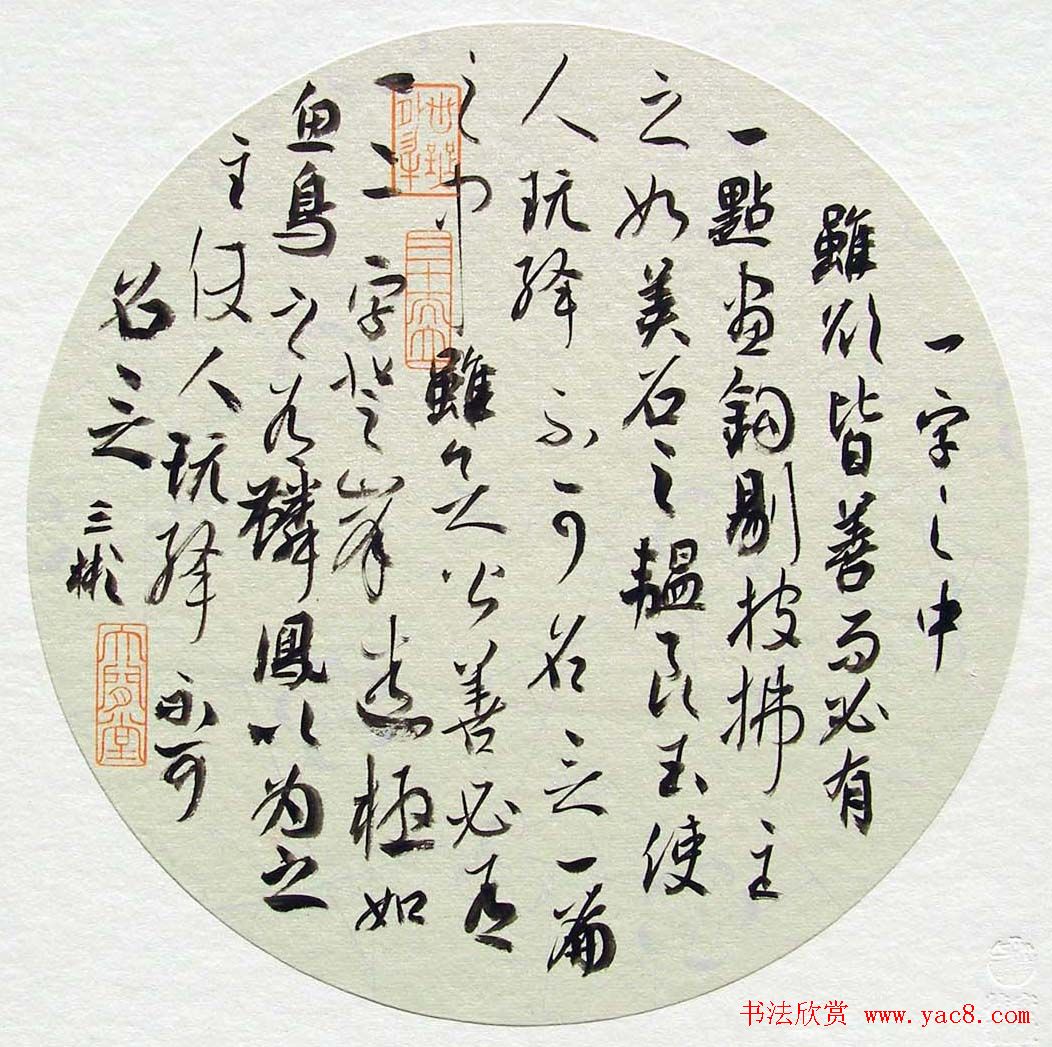 一字之中
雖欲皆善而必有
一點畫鈎剔披拂主
之如美石之韞良玉使
人玩繹不可名言一篇
之中雖欲皆善必有
一二字登峯造極如
魚鳥之有麟鳳以为之
主使人玩繹不可
名言
三彬
书法欣赏 www.yac8.com